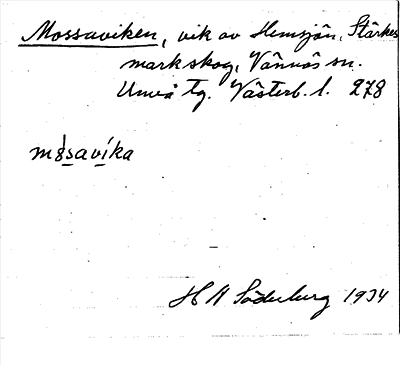 Mossaviken, vik av Hemsjön, Stärkes
mark skog, Vännäs sn.
Umeå tg. Västerb. l. 278
mo̍savíka
H N Söderberg 1934